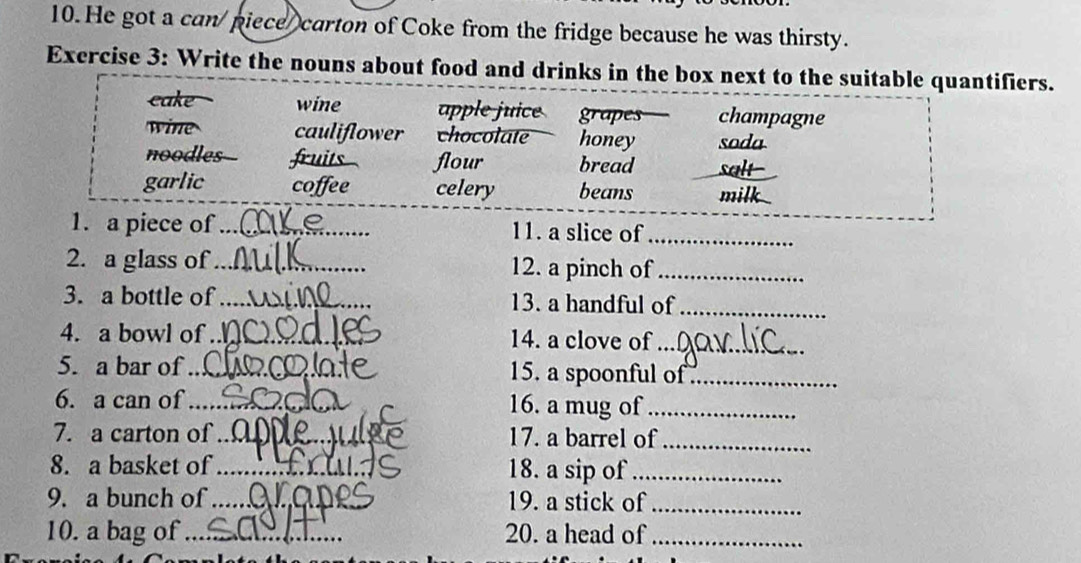 10. He got a can/ piece/ carton of Coke from the fridge because he was thirsty.
Exercise 3: Write the nouns about food and drinks in the box next to the suitable quantifiers.
cake wine apple juice grapes champagne
wine cauliflower chocolate honey soda
noodles fruits flour bread salt
garlic coffee celery beans milk
1. a piece of ...cake...
2. a glass of ...milk...
3. a bottle of ...wine...
4. a bowl of ...noodles
5. a bar of ...chocolate
6. a can of ...soda
7. a carton of ...apple juice
8. a basket of ...fruits
9. a bunch of ...grapes
10. a bag of ...salt...
11. a slice of ...
12. a pinch of ...
13. a handful of ...
14. a clove of ...garlic...
15. a spoonful of ...
16. a mug of ...
17. a barrel of ...
18. a sip of ...
19. a stick of ...
20. a head of ...